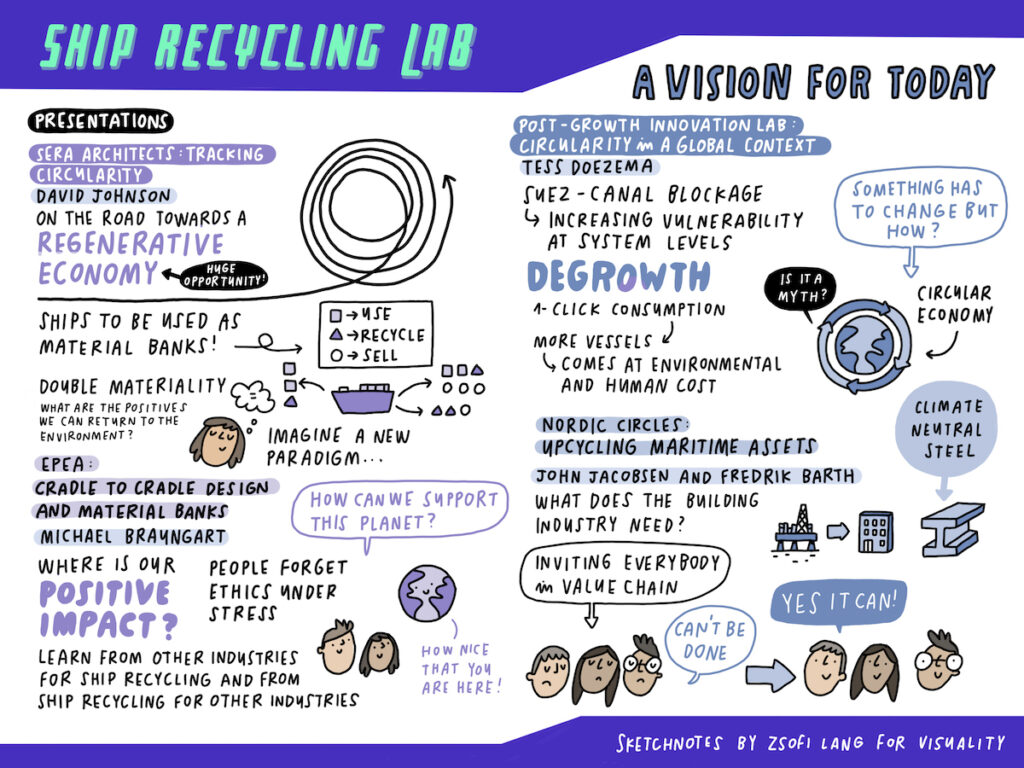 SHIP RECYCLING LAB
A VISION FOR TODAY
PRESENTATIONS
SERA ARCHITECTS: TRACKING
CIRCULARITY
DAVID JOHNSON
ON THE ROAD TOWARDS A
REGENERATIVE
ECONOMY
HUGE
OPPORTUNITY!
SHIPS TO BE USED AS
MATERIAL BANKS!
→ USE
→ RECYCLE
→ SELL
DOUBLE MATERIALITY
WHAT ARE THE POSITIVES
WE CAN RETURN TO THE
ENVIRONMENT?
IMAGINE A NEW
PARADIGM...
EPEA:
CRADLE TO CRADLE DESIGN
AND MATERIAL BANKS
MICHAEL BRAUNGART
HOW CAN WE SUPPORT
THIS PLANET?
WHERE IS OUR
POSITIVE
IMPACT?
PEOPLE FORGET
ETHICS UNDER
STRESS
HOW NICE
THAT YOU
ARE HERE!
LEARN FROM OTHER INDUSTRIES
FOR SHIP RECYCLING AND FROM
SHIP RECYCLING FOR OTHER INDUSTRIES
POST-GROWTH INNOVATION LAB:
CIRCULARITY in A GLOBAL CONTEXT
TESS DOEZEMA
SUEZ-CANAL BLOCKAGE
INCREASING VULNERABILITY
AT SYSTEM LEVELS
DEGROWTH
1-CLICK CONSUMPTION
MORE VESSELS
COMES AT ENVIRONMENTAL
AND HUMAN COST
SOMETHING HAS
TO CHANGE BUT
HOW?
IS IT A
MYTH?
CIRCULAR
ECONOMY
NORDIC CIRCLES:
UPCYCLING MARITIME ASSETS
JOHN JACOBSEN AND FREDRIK BARTH
WHAT DOES THE BUILDING
INDUSTRY NEED?
CLIMATE
NEUTRAL
STEEL
INVITING EVERYBODY
in VALUE CHAIN
CAN'T BE
DONE
YES IT CAN!
SKETCHNOTES BY ZSOFI LANG FOR VISUALITY